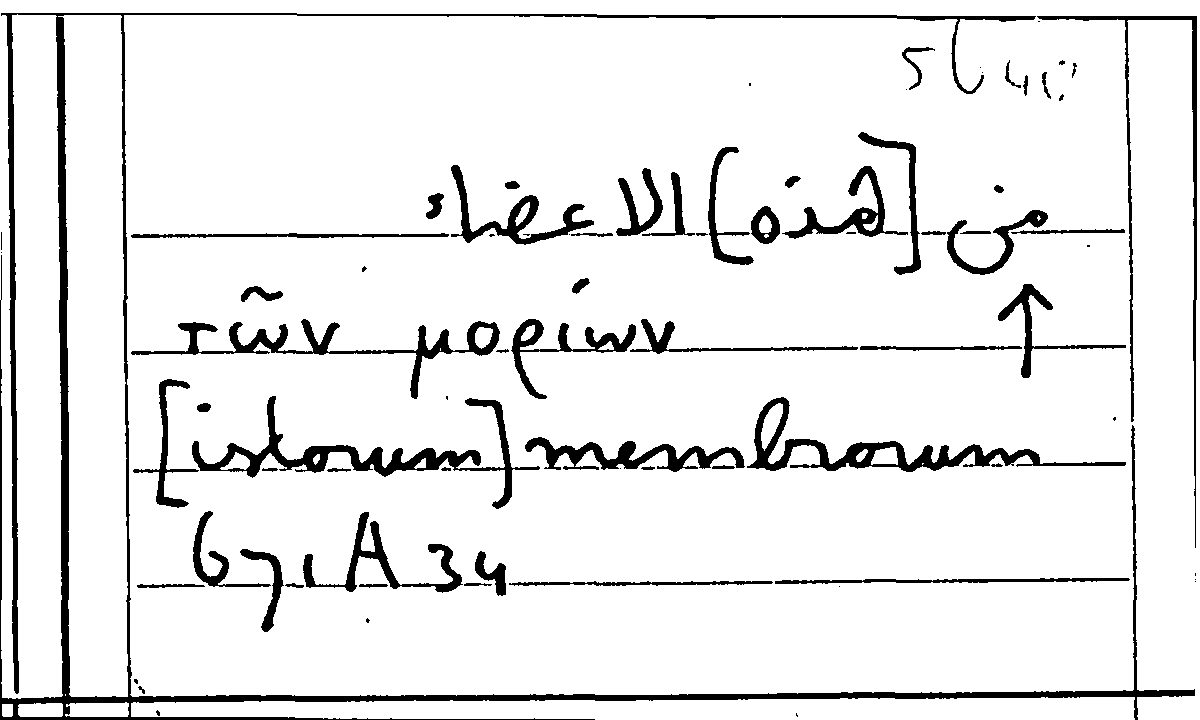 من [هذه] الاعضاء
τῶν μορίων ↑
[istorum] membrorum
671A34